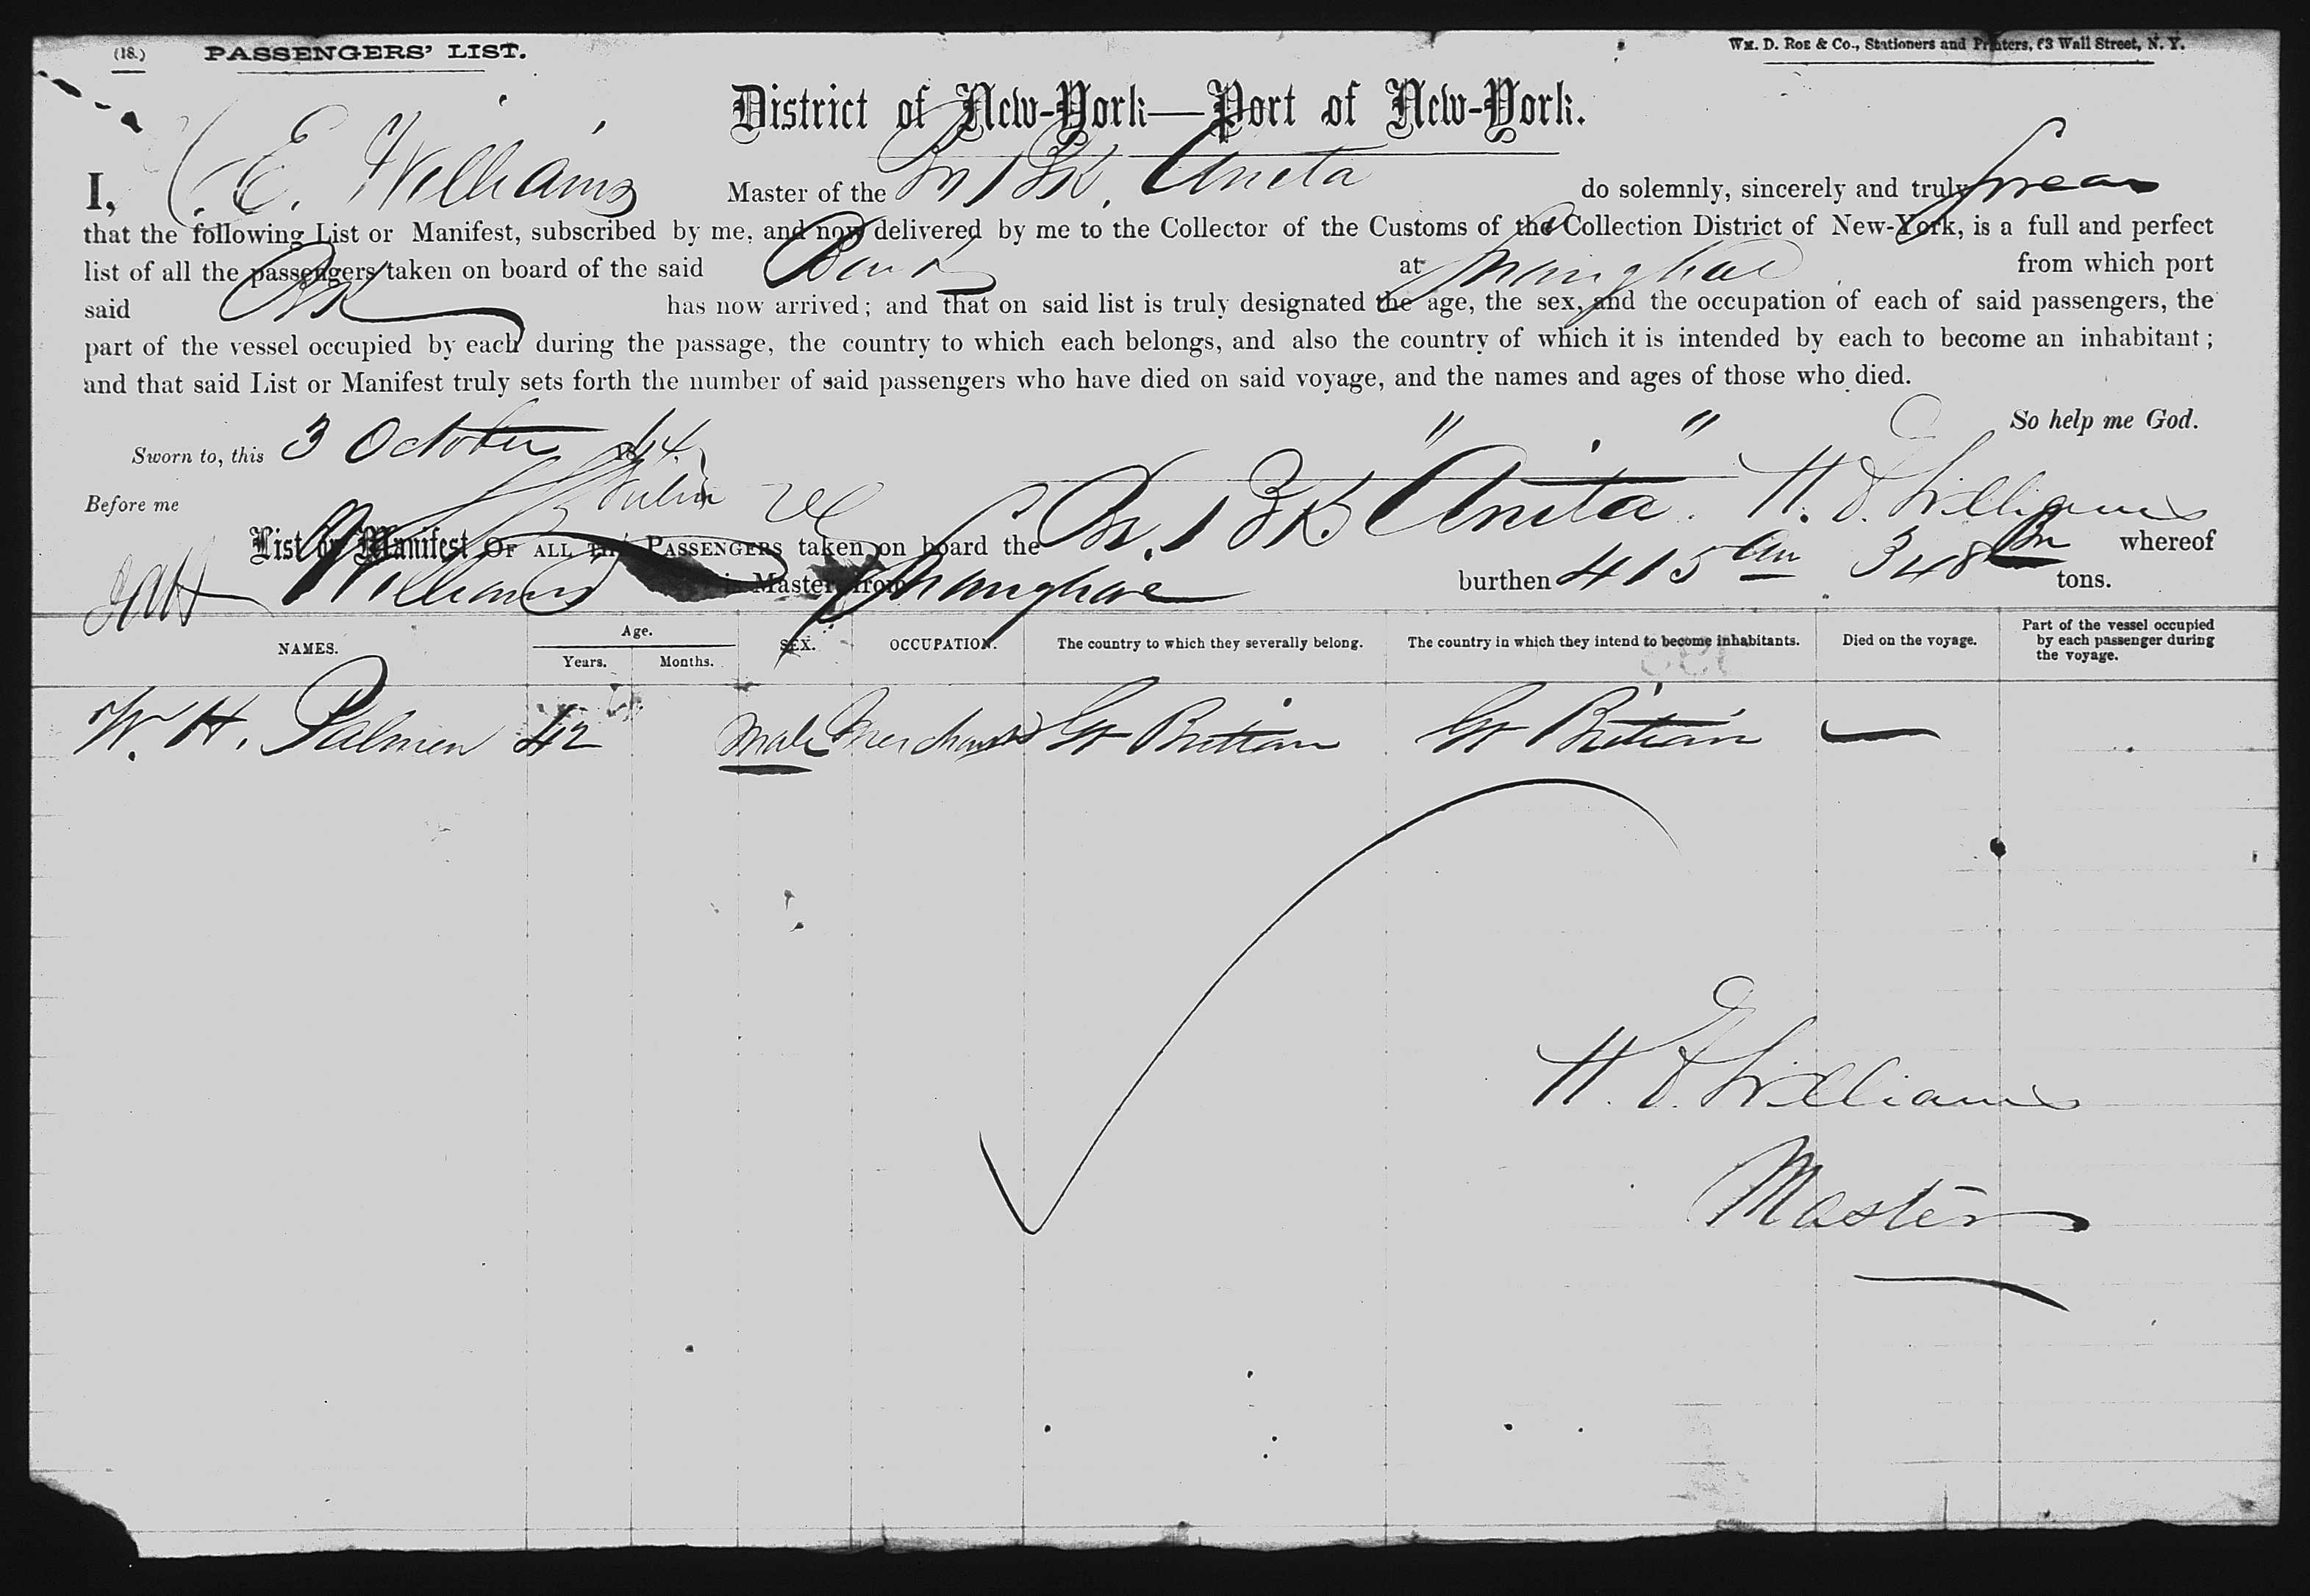 (18.) PASSENGERS' LIST. WM. D. ROE & Co., Stationers and Printers, 63 Wall Street, N. Y.
District of New-York—Port of New-York.
I, E. Williams Master of the Br Bk. Anita do solemnly, sincerely and truly swear
that the following List or Manifest, subscribed by me, and now delivered by me to the Collector of the Customs of the Collection District of New-York, is a full and perfect
list of all the passengers taken on board of the said Bark at Shanghae from which port
said Bk has now arrived; and that on said list is truly designated the age, the sex, and the occupation of each of said passengers, the
part of the vessel occupied by each during the passage, the country to which each belongs, and also the country of which it is intended by each to become an inhabitant;
and that said List or Manifest truly sets forth the number of said passengers who have died on said voyage, and the names and ages of those who died.
So help me God.
Sworn to, this 3 October 18
Before me H. Williams
List or Manifest OF ALL THE PASSENGERS taken on board the Br. Bk "Anita" whereof
Williams is Master, from Shanghae burthen 415 348 tons.
NAMES. Age. Years. Months. SEX. OCCUPATION. The country to which they severally belong. The country in which they intend to become inhabitants. Died on the voyage. Part of the vessel occupied by each passenger during the voyage.
W. H. Palmer 42 Male Merchant Gt Brittain Gt Britian —
H. Williams
Master